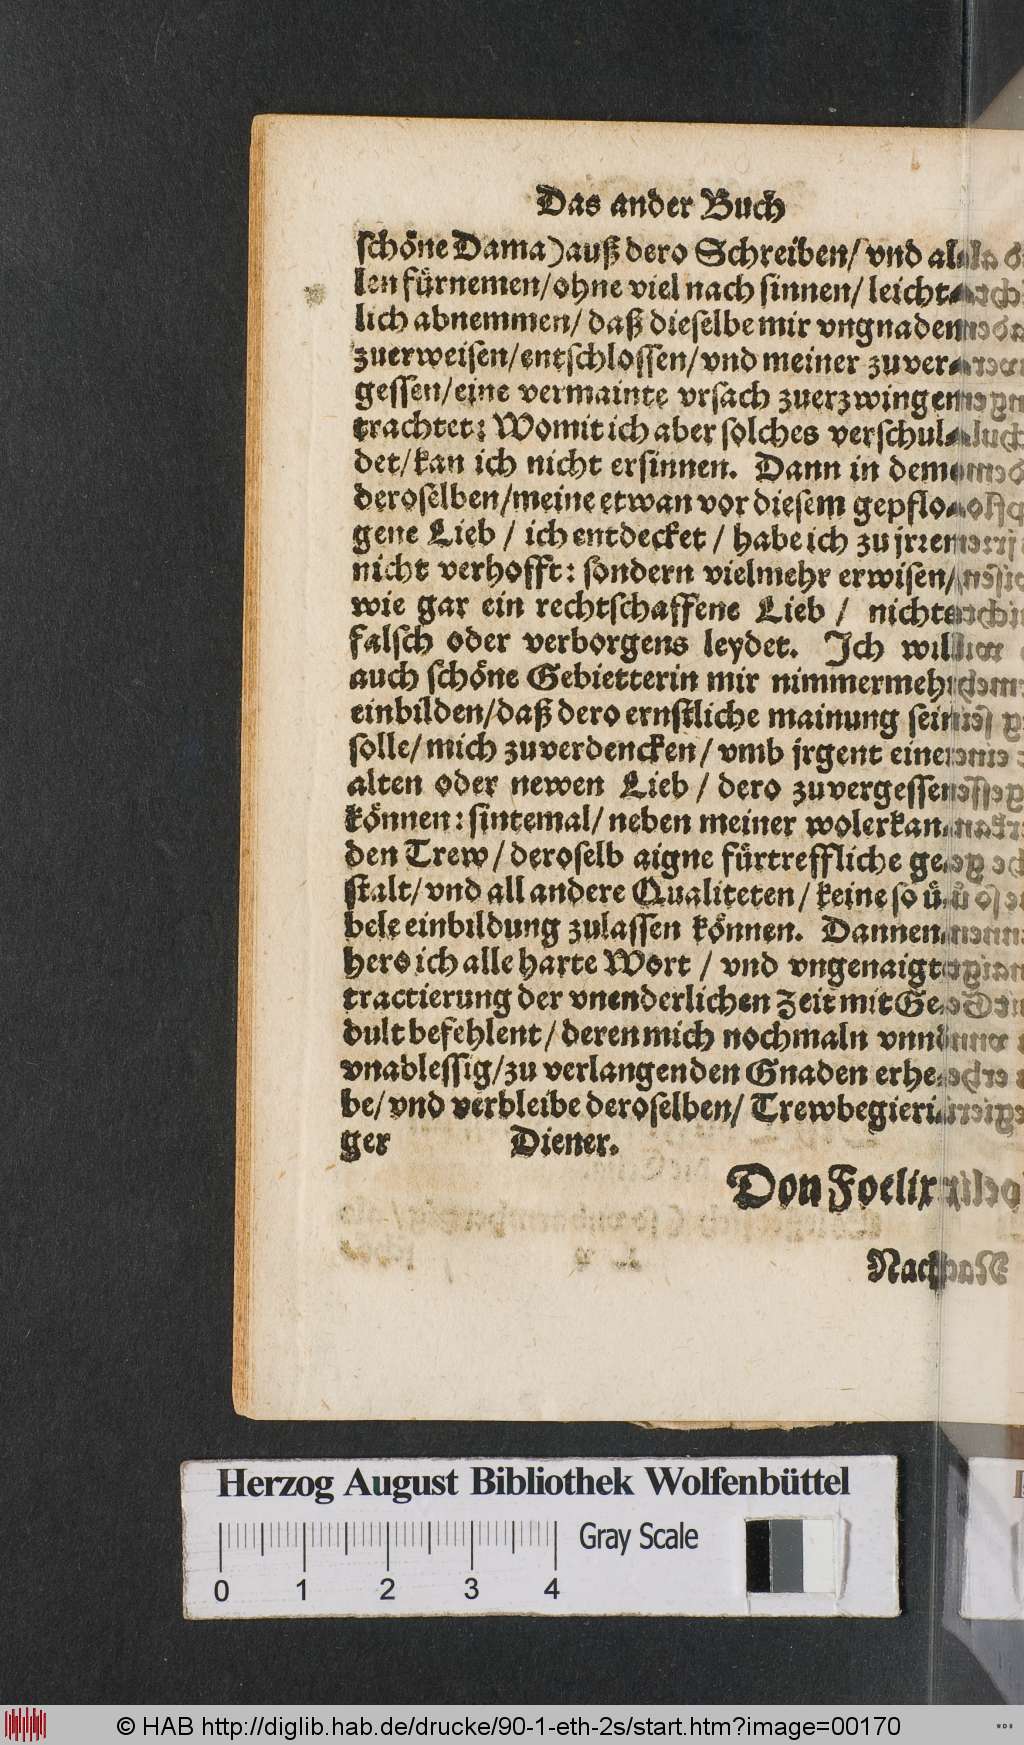 Das ander Buch
schöne Dama) auß dero Schreiben/ vnd al⸗
len fürnemen/ ohne viel nach sinnen/ leicht⸗
lich abnemmen/ daß dieselbe mir vngnaden
zuerweisen/ entschlossen/ vnd meiner zuver⸗
gessen/ eine vermainte vrsach zuerzwingen
trachtet: Womit ich aber solches verschul⸗
det/ kan ich nicht ersinnen. Dann in dem
deroselben/ meine etwan vor diesem gepflo⸗
gene Lieb / ich entdecket / habe ich zu jrren
nicht verhofft: sondern vielmehr erwisen/
wie gar ein rechtschaffene Lieb / nichts
falsch oder verborgens leydet. Ich will
auch schöne Gebietterin mir nimmermehr
einbilden/ daß dero ernstliche mainung sein
solle/ mich zuverdencken/ vmb jrgent einer
alten oder newen Lieb / dero zuvergessen
können: sintemal/ neben meiner wolerkan⸗
den Trew/ deroselb aigne fürtreffliche ge⸗
stalt/ vnd all andere Qualiteten/ keine so ü⸗
bele einbildung zulassen können. Dannen⸗
hero ich alle harte Wort / vnd vngenaigt
tractierung der vnenderlichen Zeit mit Ge⸗
dult befehlent/ deren mich nochmaln vnnd
vnablessig/ zu verlangenden Gnaden erhe⸗
be/ vnd verbleibe deroselben/ Trewbegieri⸗
ger Diener.
Don Foelix
Nach
Herzog August Bibliothek Wolfenbüttel
Gray Scale
0 1 2 3 4
© HAB http://diglib.hab.de/drucke/90-1-eth-2s/start.htm?image=00170